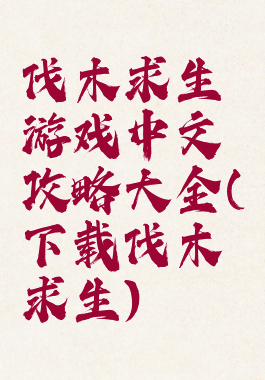 伐木求生
游戏中文
攻略大全(
下载伐木
求生)